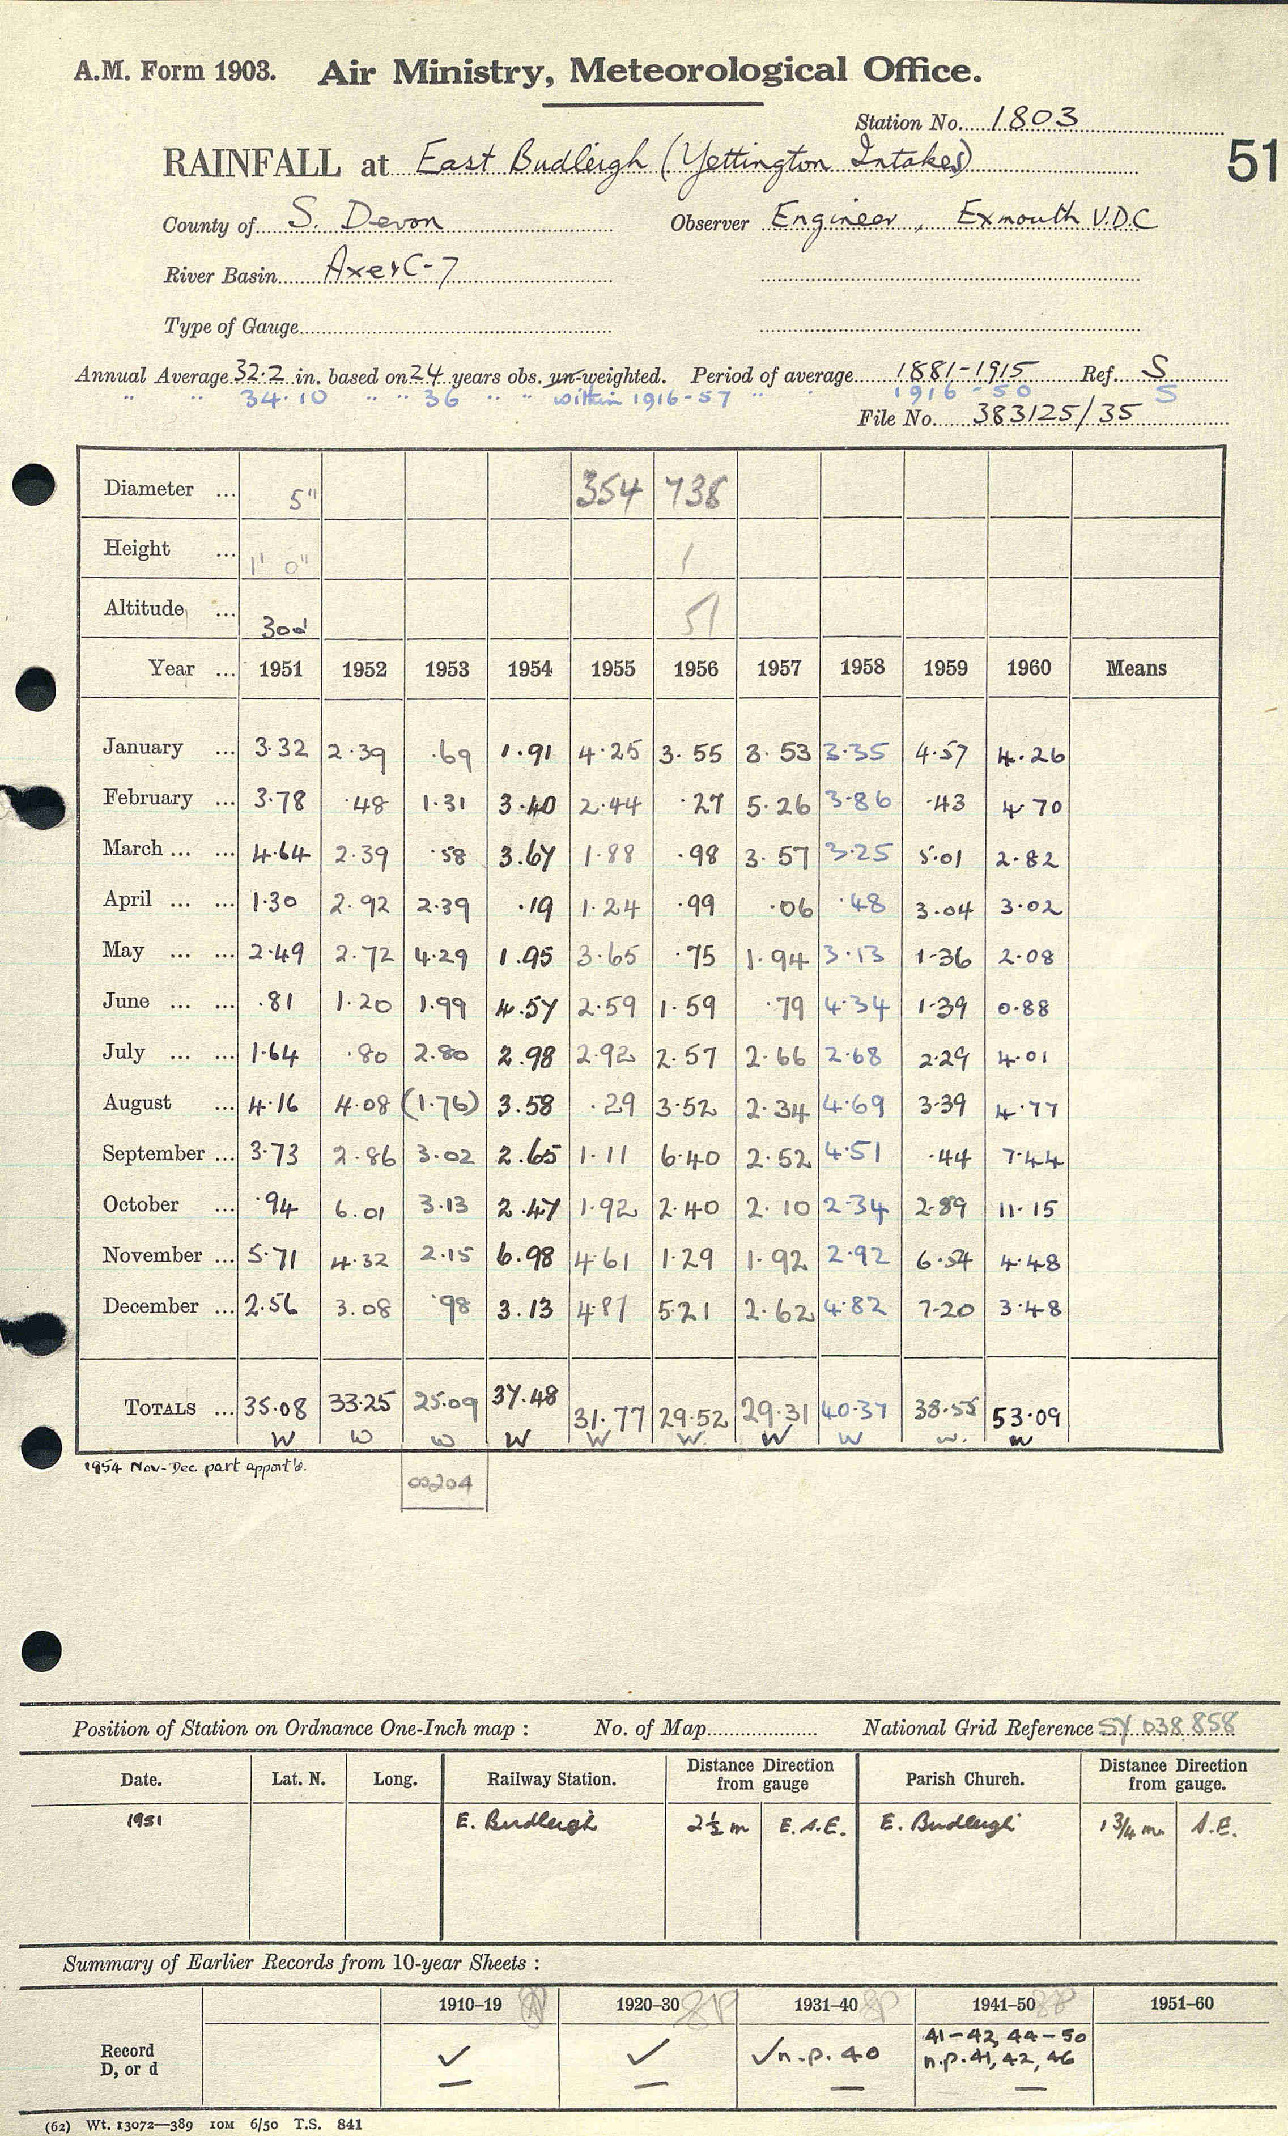 A.M. Form 1903. Air Ministry, Meteorological Office.
Station No. 1803
RAINFALL at East Budleigh (Yettington Intakes)
51
County of S. Devon Observer Engineer, Exmouth U.D.C
River Basin Axe & C-7
Type of Gauge
Annual Average 32.2 in. based on 24 years obs. un-weighted. Period of average 1881-1915 Ref. S
" " 34.10 " " 36 " " within 1916-57 " " 1916-50 S
File No. 383125/35
Diameter ... 5" 354 738
Height ... 1' 0" 1
Altitude ... 300 51
Year ... 1951 1952 1953 1954 1955 1956 1957 1958 1959 1960 Means
January ... 3.32 2.39 .69 1.91 4.25 3.55 3.53 3.35 4.57 4.26
February ... 3.78 .48 1.31 3.40 2.44 .27 5.26 3.86 .43 4.70
March ... ... 4.64 2.39 .58 3.67 1.88 .98 3.57 3.25 5.01 2.82
April ... ... 1.30 2.92 2.39 .19 1.24 .99 .06 .48 3.04 3.02
May ... ... 2.49 2.72 4.29 1.95 3.65 .75 1.94 3.13 1.36 2.08
June ... ... .81 1.20 1.99 4.57 2.59 1.59 .79 4.34 1.39 0.88
July ... ... 1.64 .80 2.80 2.98 2.92 2.57 2.66 2.68 2.29 4.01
August ... 4.16 4.08 (1.76) 3.58 .29 3.52 2.34 4.69 3.39 4.77
September ... 3.73 2.86 3.02 2.65 1.11 6.40 2.52 4.51 .44 7.44
October ... .94 6.01 3.13 2.47 1.92 2.40 2.10 2.34 2.89 11.15
November ... 5.71 4.32 2.15 6.98 4.61 1.29 1.92 2.92 6.54 4.48
December ... 2.56 3.08 .98 3.13 4.87 5.21 2.62 4.82 7.20 3.48
TOTALS ... 35.08 33.25 25.09 37.48 31.77 29.52 29.31 40.37 38.55 53.09
W W W W W W. W W W. W
1954 Nov-Dec part apport'd.
Position of Station on Ordnance One-Inch map : No. of Map National Grid Reference SY 038 858
Date. Lat. N. Long. Railway Station. Distance from gauge Direction Parish Church. Distance from gauge. Direction
1951 E. Budleigh 2½ m E.S.E. E. Budleigh 1¾ m. S.E.
Summary of Earlier Records from 10-year Sheets :
1910–19 1920–30 1931–40 1941–50 1951–60
Record D, or d ✓ ✓ ✓ n.p. 40 41-42, 44-50
n.p. 41, 42, 46
(62) Wt. 13072—389 10M 6/50 T.S. 841